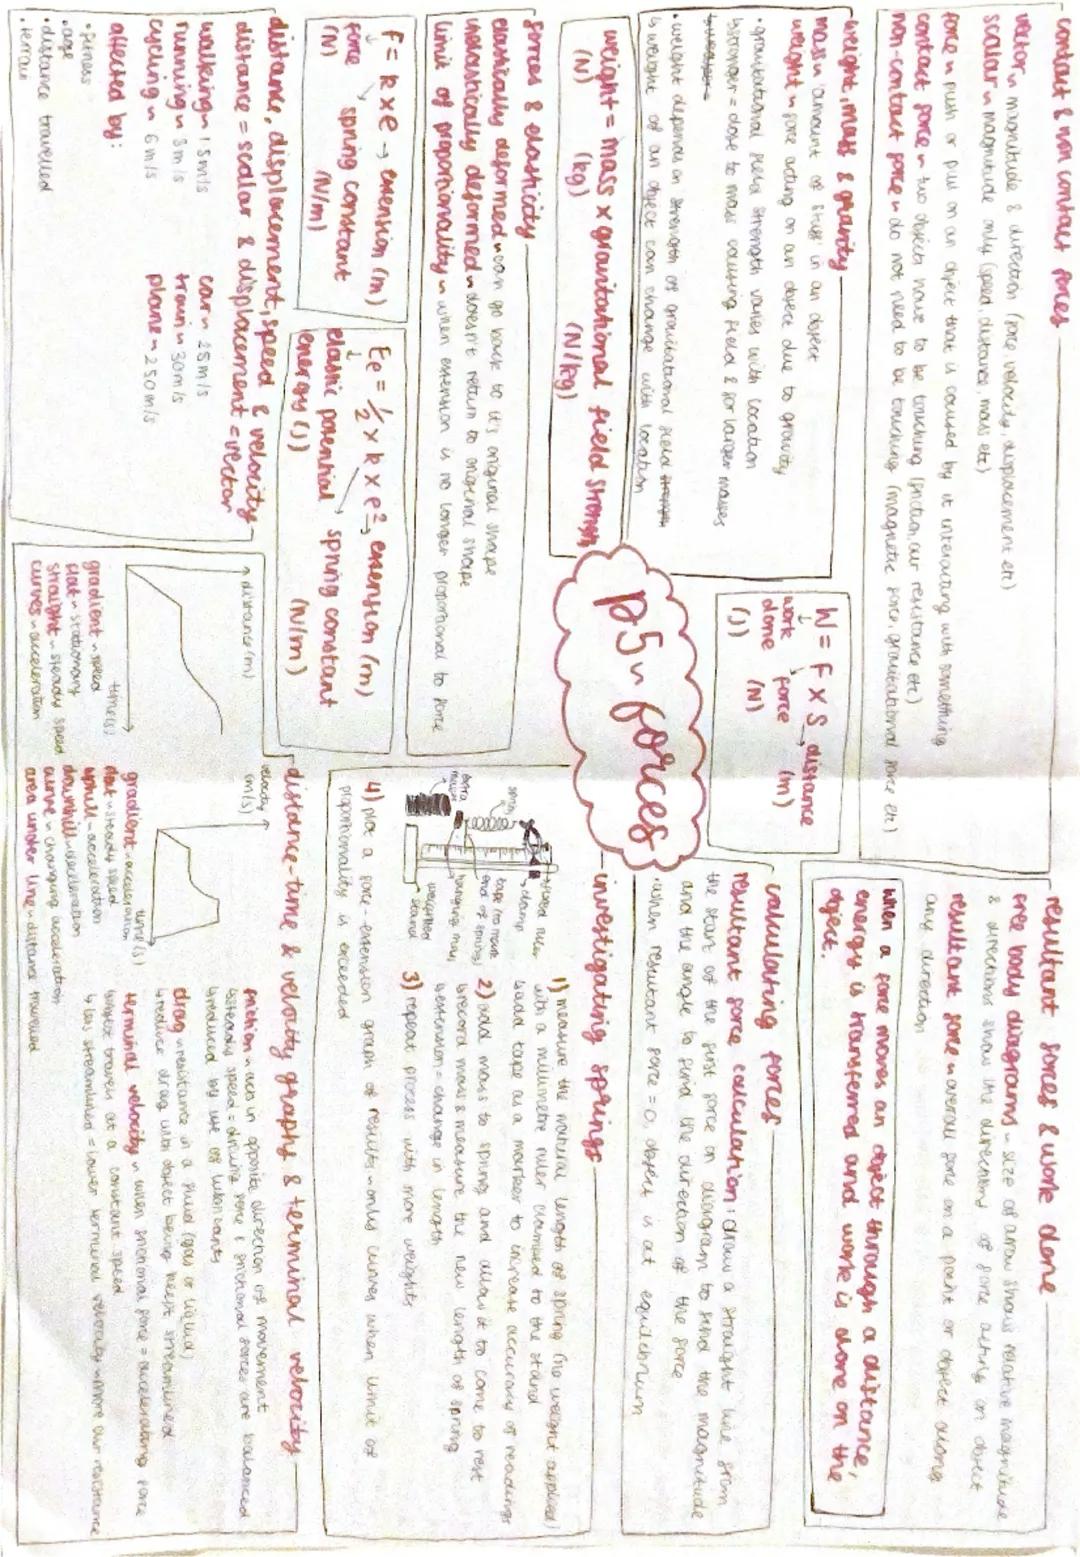 contact & non contact forces
vector ~ magnitude & direction (force, velocity, displacement etc)
scalar ~ magnitude only (speed, distance, mass etc)
force ~ push or pull on an object that is caused by it interacting with something
contact force ~ two objects have to be touching (friction, air resistance etc)
non-contact force ~ do not need to be touching (magnetic force, gravitational force etc)
weight, mass & gravity
mass ~ 'amount of stuff' in an object
weight ~ force acting on an object due to gravity
• gravitational field strength varies with location
↳ stronger = close to mass causing field & for larger masses
• weight depends on strength of gravitational field
↳ weight of an object can change with location
weight = mass x gravitational field strength
(N) (kg) (N/kg)
W = F x S → distance (m)
work done (J)
force (N)
p5 ~ forces
resultant forces & work done
free body diagrams ~ size of arrow shows relative magnitude
& directions show the directions of force acting on object
resultant force ~ overall force on a point or object along
any direction
when a force moves an object through a distance,
energy is transferred and work is done on the
object.
calculating forces
resultant force calculation: draw a straight line from
the start of the first force on diagram to find the magnitude
and the angle to find the direction of the force
• when resultant force = 0, object is at equilibrium
forces & elasticity
elastically deformed ~ can go back to it's original shape
inelastically deformed ~ doesn't return to original shape
limit of proportionality ~ when extension is no longer proportional to force
F = k x e → extension (m)
force (N)
spring constant (N/m)
Ee = 1/2 x k x e² → extension (m)
elastic potential energy (J)
spring constant (N/m)
investigating springs
fixed ruler
clamp
spring
tape (to mark end of spring)
hanging mass
extra masses
weighted stand
1) measure the natural length of spring (no weight applied)
with a millimetre ruler clamped to the stand
↳ add tape as a marker to increase accuracy of readings
2) add mass to spring and allow it to come to rest
↳ record mass & measure the new length of spring
↳ extension = change in length
3) repeat process with more weights
4) plot a force-extension graph of results ~ only curves when limit of
proportionality is exceeded
distance, displacement, speed & velocity
distance = scalar & displacement = vector
walking ~ 1.5m/s car ~ 25m/s
running ~ 3m/s train ~ 30m/s
cycling ~ 6m/s plane ~ 250m/s
affected by:
• fitness
• age
• distance travelled
• terrain
distance-time & velocity graphs & terminal velocity
distance (m)
time (s)
gradient ~ speed
flat ~ stationary
straight ~ steady speed
curves ~ acceleration
velocity (m/s)
time (s)
gradient ~ acceleration
flat ~ steady speed
uphill ~ acceleration
downhill ~ deceleration
curve ~ changing acceleration
area under line ~ distance travelled
friction ~ acts in opposite direction of movement
↳ steady speed = driving force & frictional forces are balanced
↳ reduced by use of lubricants
drag ~ resistance in a fluid (gas or liquid)
↳ reduce drag with object being kept streamlined
terminal velocity ~ when frictional force = accelerating force
↳ object travels at a constant speed
↳ less streamlined = lower terminal velocity ~ more air resistance